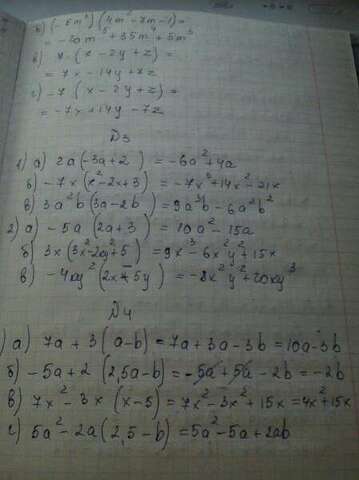 б) (-5m³)(4m²-7m-1)=
= -20m⁵+35m+5m³
в) 7·(x-2y+z)=
= 7x-14y+7z
г) -7(x-2y+z)=
= -7x+14y-7z
Д3
1) а) 2a(-3a+2)=-6a²+4a
б) -7x(x²-2x+3)=-7x³+14x²-21x
в) 3a²b(3a-2b)=9a³b-6a²b²
2) а) -5a(2a+3)=10a²-15a
б) 3x(3x²-2xy²+5)=9x³-6x²y²+15x
в) -4xy²(2x-5y)=-8x²y²+20xy³
Д4
) а) 7a+3(a-b)=7a+3a-3b=10a-3b
б) -5a+2(2,5a-b)=-5a+5a-2b=-2b
в) 7x²-3x(x-5)=7x²-3x²+15x=4x²+15x
г) 5a²-2a(2,5-b)=5a²-5a+2ab